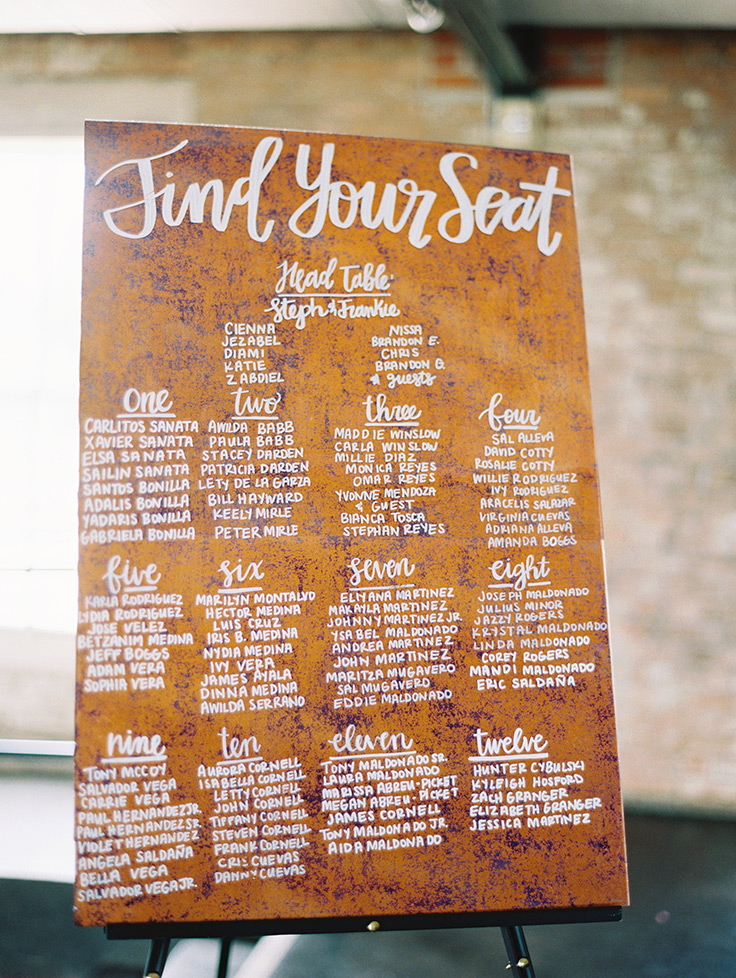 Find Your Seat
Head Table:
Steph & Frankie
CIENNA
JEZABEL
DIAMI
KATIE
ZABDIEL
NISSA
BRANDON E.
CHRIS
BRANDON G.
& guests
one
CARLITOS SANATA
XAVIER SANATA
ELSA SANATA
SAILIN SANATA
SANTOS BONILLA
ADALIS BONILLA
YADARIS BONILLA
GABRIELA BONILLA
two
AWILDA BABB
PAULA BABB
STACEY DARDEN
PATRICIA DARDEN
LETY DE LA GARZA
BILL HAYWARD
KEELY MIRLE
PETER MIRLE
three
MADDIE WINSLOW
CARLA WINSLOW
MILLIE DIAZ
MONICA REYES
OMAR REYES
YVONNE MENDOZA
& GUEST
BIANCA TOSCA
STEPHAN REYES
four
SAL ALLEVA
DAVID COTTY
ROSALIE COTTY
WILLIE RODRIGUEZ
IVY RODRIGUEZ
ARACELIS SALAZAR
VIRGINIA CUEVAS
ADRIANA ALLEVA
AMANDA BOGGS
five
KARLA RODRIGUEZ
LYDIA RODRIGUEZ
JOSE VELEZ
BETZANIM MEDINA
JEFF BOGGS
ADAM VERA
SOPHIA VERA
six
MARILYN MONTALVO
HECTOR MEDINA
LUIS CRUZ
IRIS B. MEDINA
NYDIA MEDINA
IVY VERA
JAMES AYALA
DINNA MEDINA
AWILDA SERRANO
seven
ELIYANA MARTINEZ
MAKAYLA MARTINEZ
JOHNNY MARTINEZ JR
YSABEL MALDONADO
ANDREA MARTINEZ
JOHN MARTINEZ
MARITZA MUGAVERO
SAL MUGAVERO
EDDIE MALDONADO
eight
JOSEPH MALDONADO
JULIUS MINOR
JAZZY ROGERS
KRYSTAL MALDONADO
LINDA MALDONADO
COREY ROGERS
MANDI MALDONADO
ERIC SALDAÑA
nine
TONY MCCOY
SALVADOR VEGA
CARRIE VEGA
PAUL HERNANDEZ JR
PAUL HERNANDEZ SR
VIOLET HERNANDEZ
ANGELA SALDAÑA
BELLA VEGA
SALVADOR VEGA JR.
ten
AURORA CORNELL
ISABELLA CORNELL
LETTY CORNELL
JOHN CORNELL
TIFFANY CORNELL
STEVEN CORNELL
FRANK CORNELL
CRIS CUEVAS
DANNY CUEVAS
eleven
TONY MALDONADO SR.
LAURA MALDONADO
MARISSA ABREU-PICKET
MEGAN ABREU-PICKET
JAMES CORNELL
TONY MALDONADO JR
AIDA MALDONADO
twelve
HUNTER CYBULSKI
KYLEIGH HOSFORD
ZACH GRANGER
ELIZABETH GRANGER
JESSICA MARTINEZ